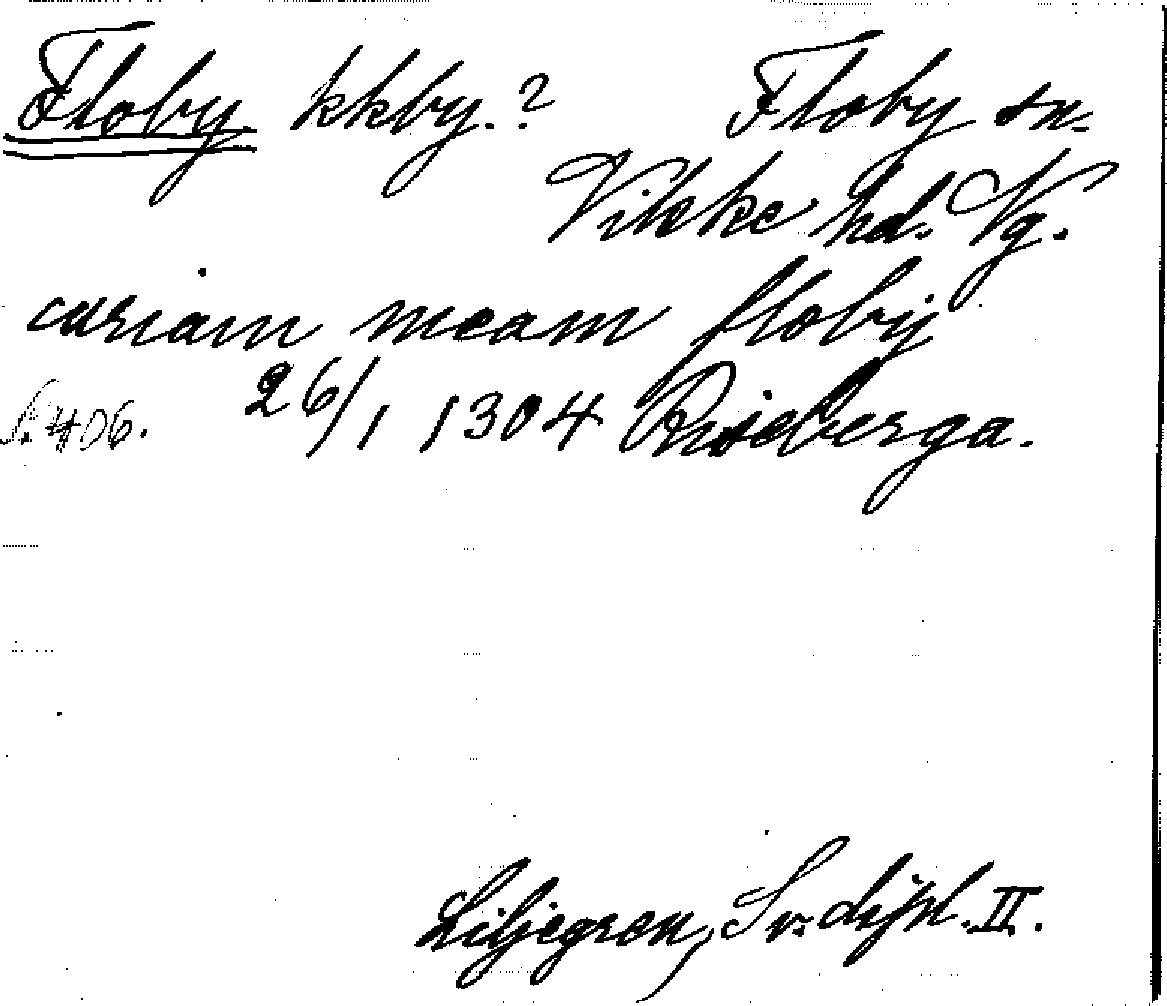 Floby kkby.? Floby sn.
Vilske hd. Vg.
curiam meam floby
S. 406. 26/1 1304 Riseberga.
Liljegren, Sv. dipl. II.